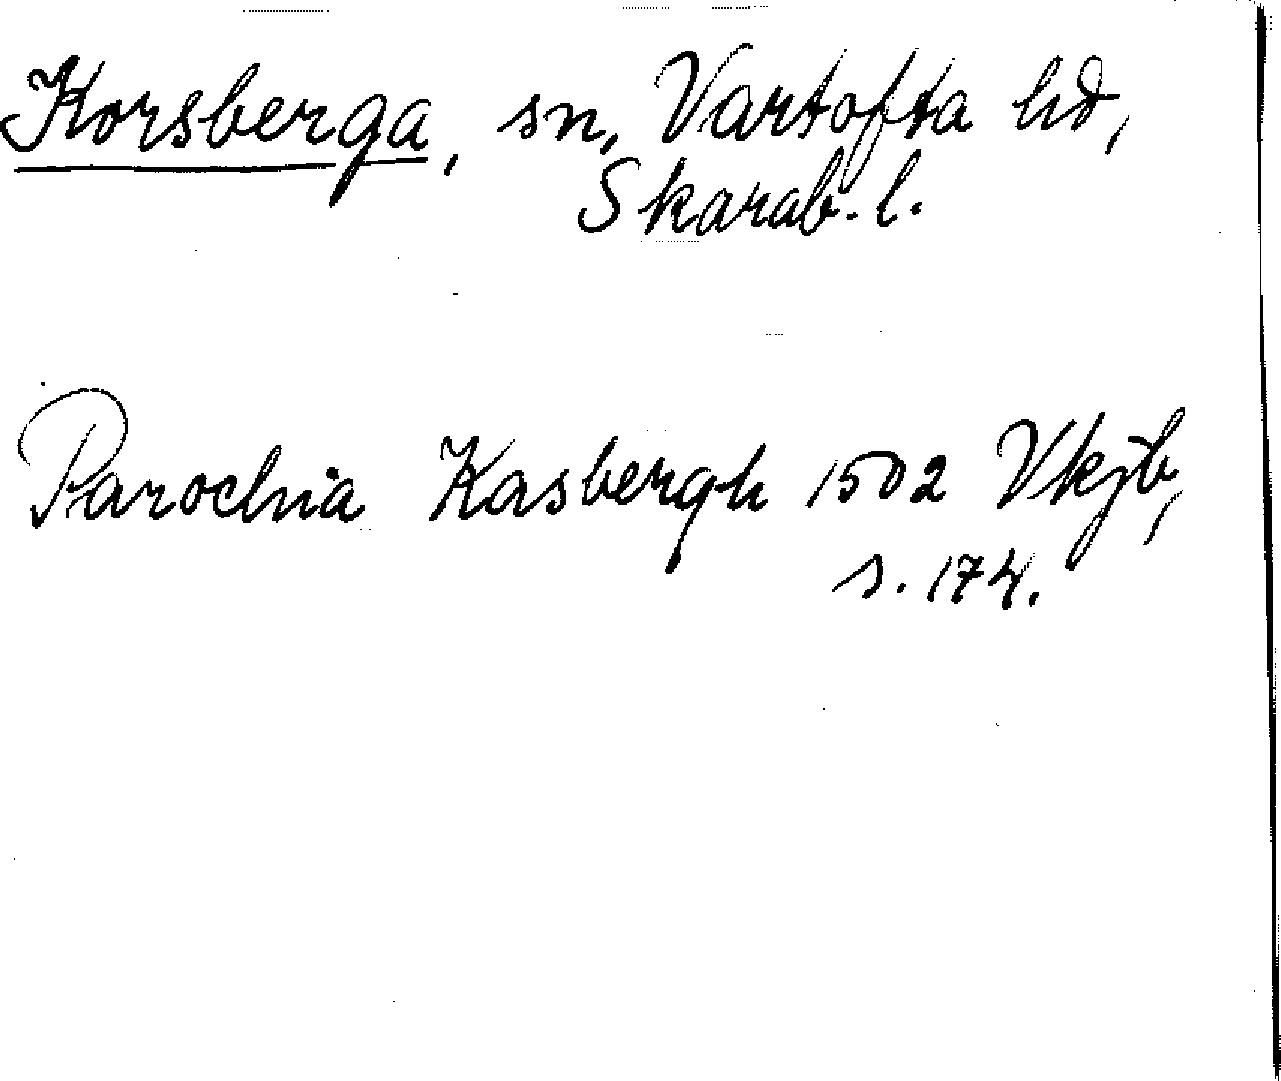 Korsberga, sn, Vartofta hd,
Skarab. l.
Parochia Kasbergh 1502 Vkjb,
s. 174.